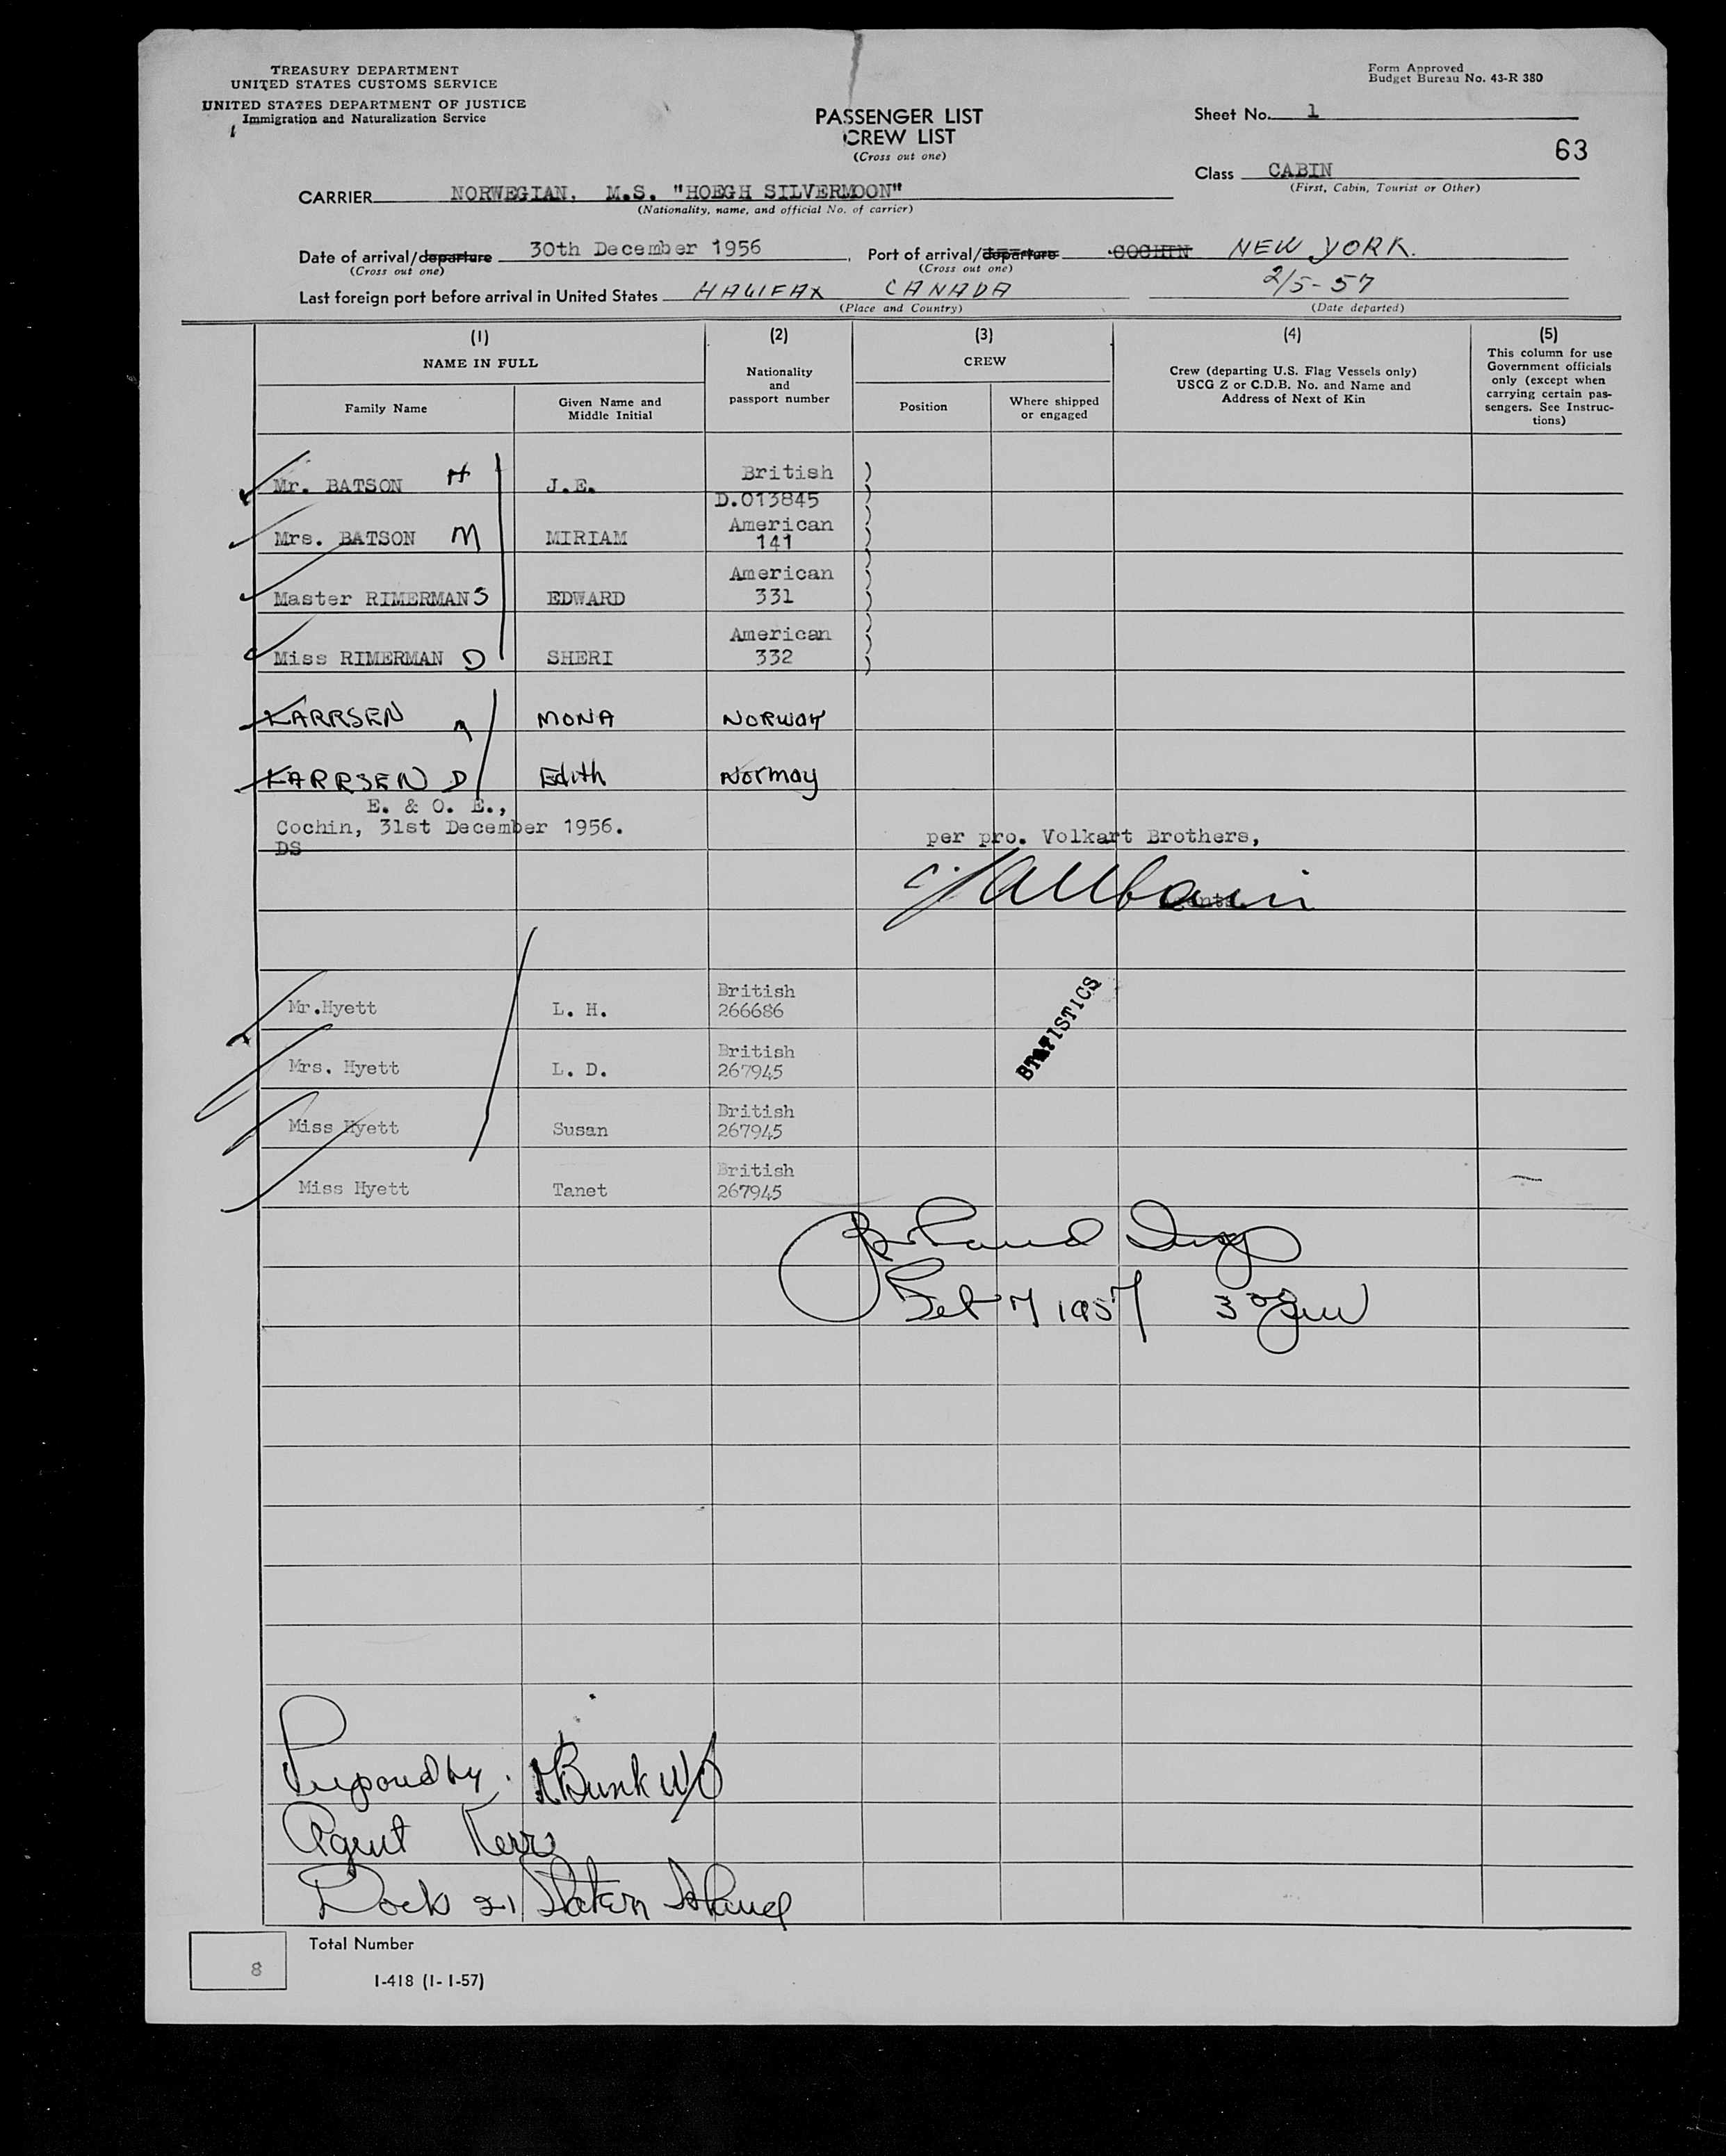 TREASURY DEPARTMENT
UNITED STATES CUSTOMS SERVICE
UNITED STATES DEPARTMENT OF JUSTICE
Immigration and Naturalization Service
Form Approved
Budget Bureau No. 43-R 380
PASSENGER LIST
CREW LIST
(Cross out one)
Sheet No. 1
63
Class CABIN
(First, Cabin, Tourist or Other)
CARRIER NORWEGIAN. M.S. "HOEGH SILVERMOON"
(Nationality, name, and official No. of carrier)
Date of arrival/departure 30th December 1956, Port of arrival/departure COCHIN NEW YORK.
(Cross out one) (Cross out one)
Last foreign port before arrival in United States HALIFAX CANADA 2/5-57
(Place and Country) (Date departed)
(1) (2) (3) (4) (5)
NAME IN FULL
Family Name
Given Name and
Middle Initial
Nationality
and
passport number
CREW
Position
Where shipped
or engaged
Crew (departing U.S. Flag Vessels only)
USCG Z or C.D.B. No. and Name and
Address of Next of Kin
This column for use
Government officials
only (except when
carrying certain pas-
sengers. See Instruc-
tions)
Mr. BATSON H J.E. British
D.013845
Mrs. BATSON M MIRIAM American
141
Master RIMERMAN S EDWARD American
331
Miss RIMERMAN D SHERI American
332
KARRSEN MONA NORWAY
KARRSEN D Edith Norway
E. & O. E.,
Cochin, 31st December 1956.
DS
per pro. Volkart Brothers,
Mr.Hyett L. H. British
266686
Mrs. Hyett L. D. British
267945
Miss Hyett Susan British
267945
Miss Hyett Tanet British
267945
STATISTICS
Feb 7 1957
Prepared by
Agent Kerr
Dock 21 Staten Island
8
Total Number
I-418 (1-1-57)